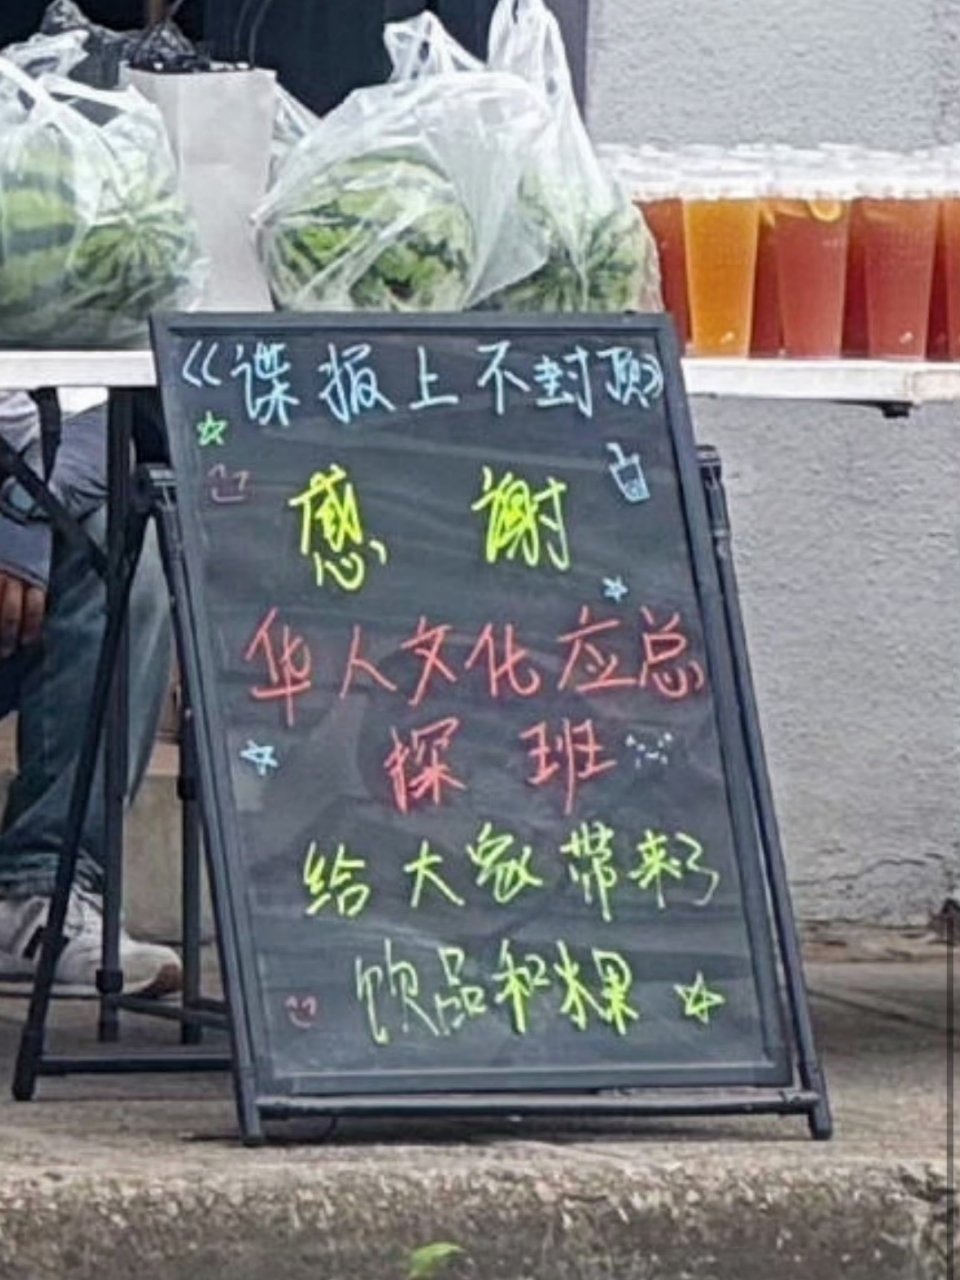 《谍报上不封顶》
感谢
华人文化应总
探班
给大家带来了
饮品和水果